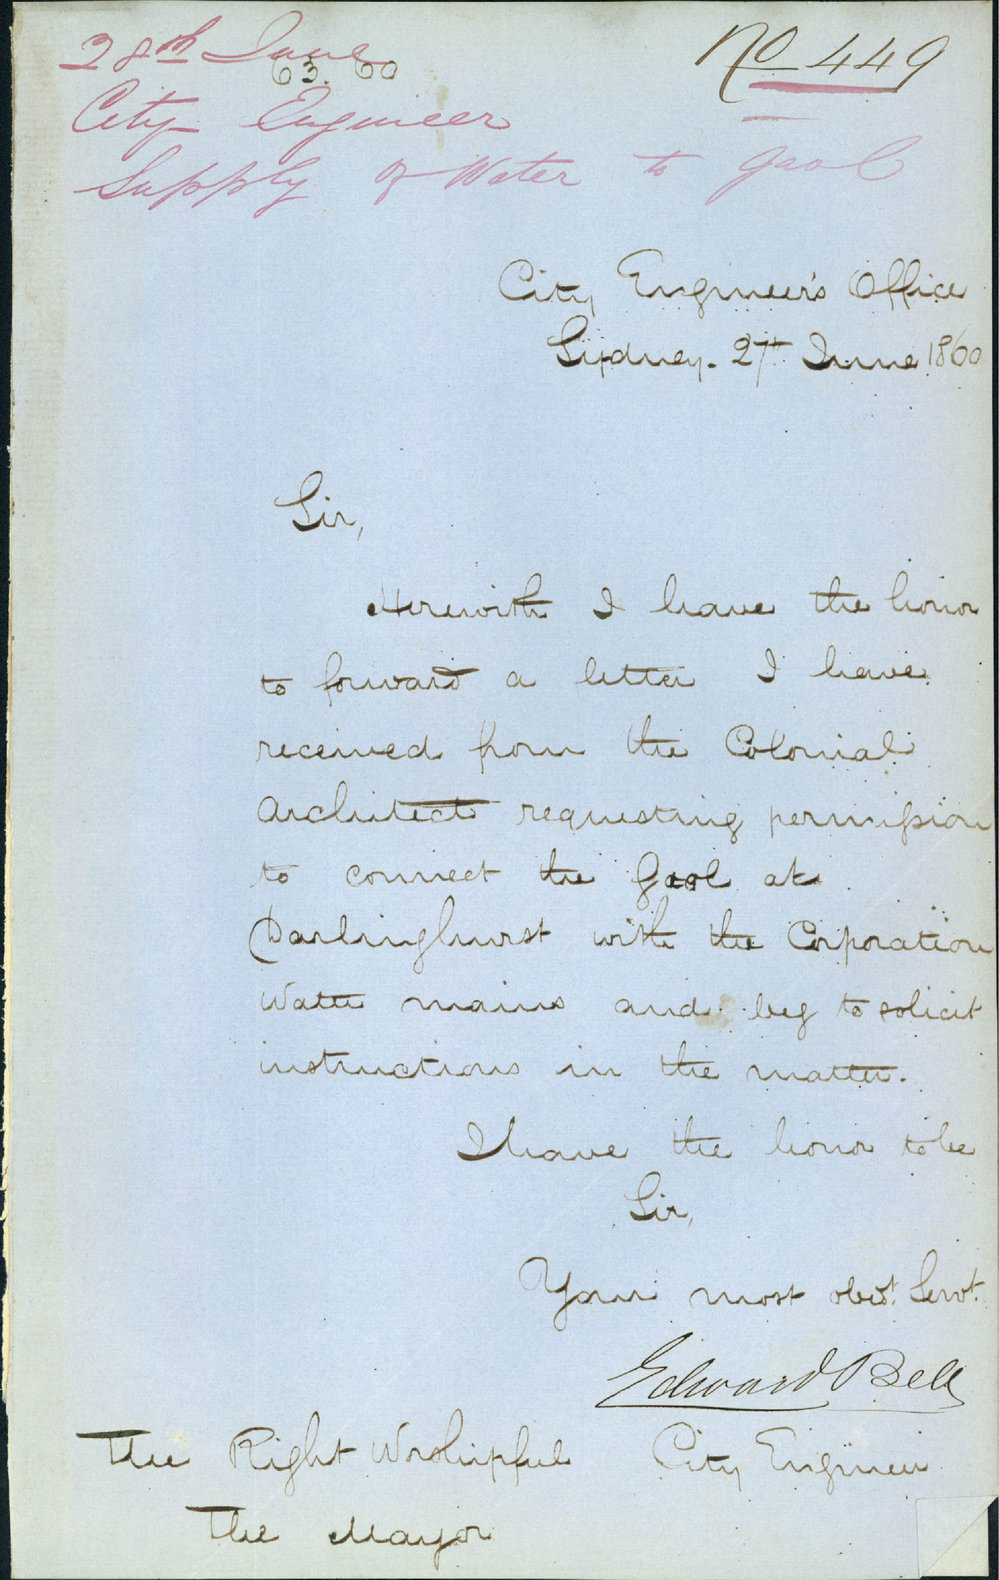 28th June
No 449
63.60
City Engineer
Supply of Water to Gaol
City Engineer's Office
Sydney. 27th June 1860
Sir,
Herewith I have the honor
to forward a letter I have
received from the Colonial
Architect requesting permission
to connect the Gaol at
Darlinghurst with the Corporation
Water mains and beg to solicit
instructions in the matter.
I have the honor to be
Sir,
Your most obedt. Servt.
Edward Bell
The Right Worshipful City Engineer
The Mayor